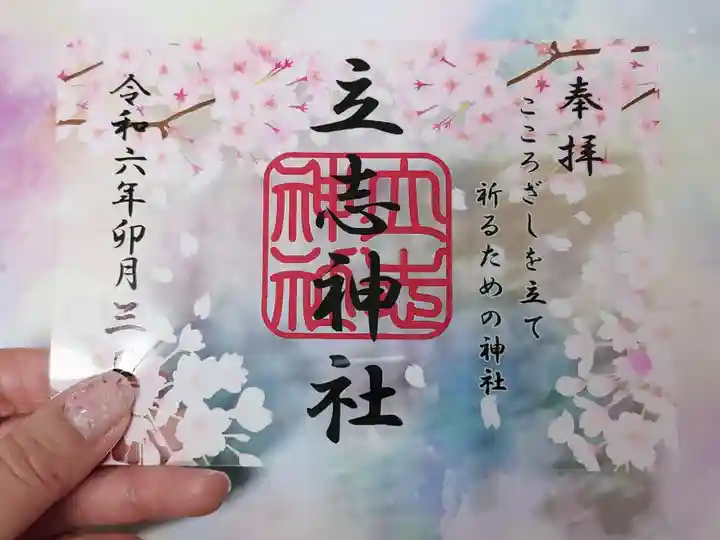 奉拝
こころざしを立て
祈るための神社
立志神社
立志
神社
令和六年卯月三